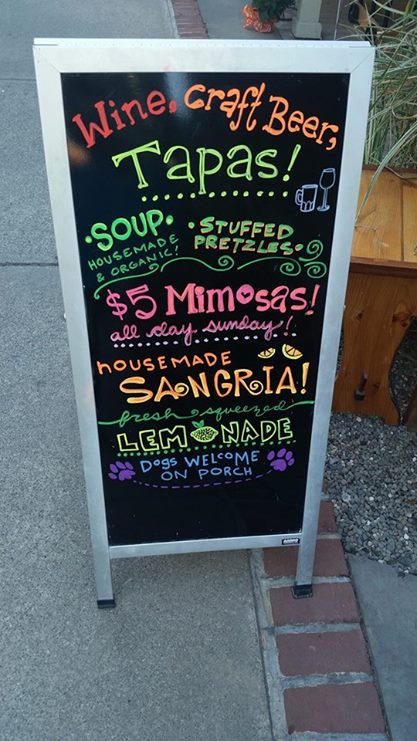 Wine, Craft Beer,
Tapas!
•SOUP•
HOUSEMADE
& ORGANIC!
•STUFFED
PRETZLES•
$5 Mimosas!
all day sunday!
HOUSEMADE
SANGRIA!
fresh squeezed
LEMONADE
DOGS WELCOME
ON PORCH